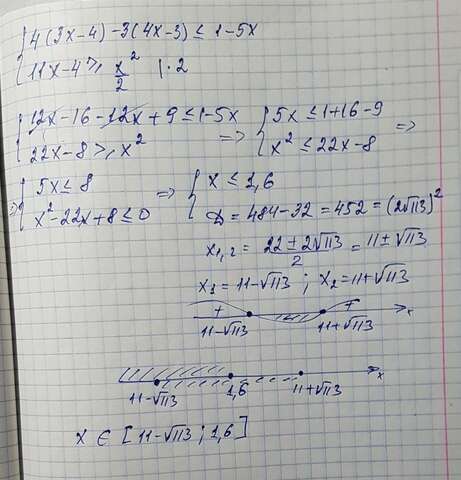 { 4(3x-4)-3(4x-3) ≤ 1-5x
11x-4 ≥ x²/2 |·2
{ 12x-16-12x+9 ≤ 1-5x => { 5x ≤ 1+16-9 =>
22x-8 ≥ x² x² ≤ 22x-8
=> { 5x ≤ 8 => { x ≤ 1,6
x²-22x+8 ≤ 0 D = 484-32 = 452 = (2√113)²
x₁,₂ = (22±2√113)/2 = 11±√113
x₁ = 11-√113 ; x₂ = 11+√113
+ - + x
11-√113 11+√113
x
11-√113 1,6 11+√113
x ∈ [11-√113 ; 1,6]